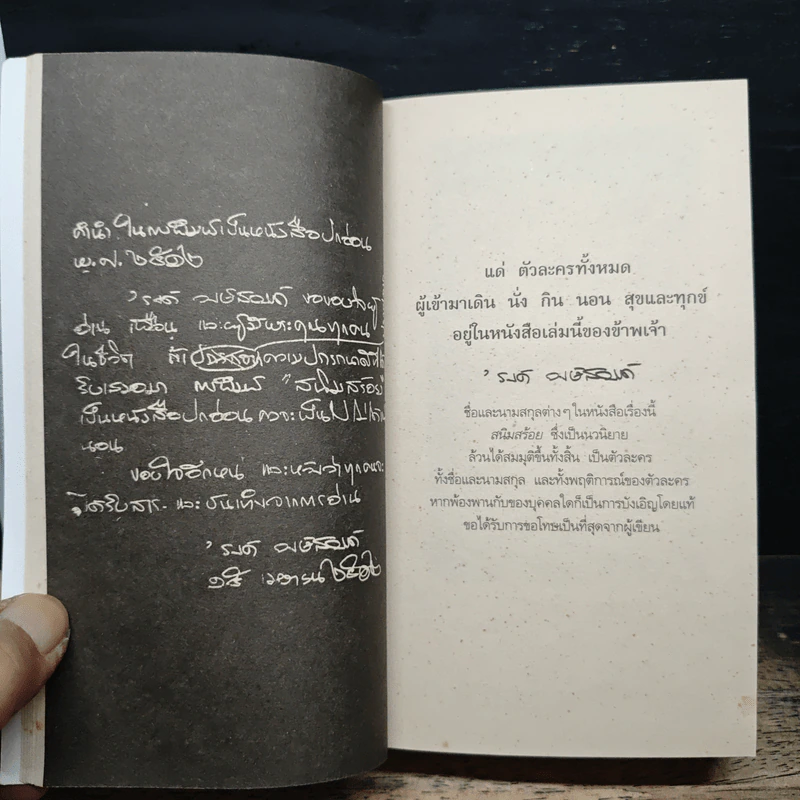 คำนำ ในการพิมพ์เป็นหนังสือปกอ่อน
พ.ศ. ๒๕๑๒
'รงค์ วงษ์สวรรค์ ขอขอบใจ
อ่าน เพื่อน และ
ในชีวิต ความปรารถนาดี
"สนิมสร้อย"
เป็นหนังสือปกอ่อน คงจะเป็นไปไม่ได้
นอน
ขอบใจอีกหน และหวังว่าทุกคนจะ
ได้รับสาระ และบันเทิงจากการอ่าน
'รงค์ วงษ์สวรรค์
๑๕ เมษายน ๒๕๑๒
แด่ ตัวละครทั้งหมด
ผู้เข้ามาเดิน นั่ง กิน นอน สุขและทุกข์
อยู่ในหนังสือเล่มนี้ของข้าพเจ้า
'รงค์ วงษ์สวรรค์
ชื่อและนามสกุลต่างๆ ในหนังสือเรื่องนี้
สนิมสร้อย ซึ่งเป็นนวนิยาย
ล้วนได้สมมุติขึ้นทั้งสิ้น เป็นตัวละคร
ทั้งชื่อและนามสกุล และทั้งพฤติการณ์ของตัวละคร
หากพ้องพานกับของบุคคลใดก็เป็นการบังเอิญโดยแท้
ขอได้รับการขอโทษเป็นที่สุดจากผู้เขียน